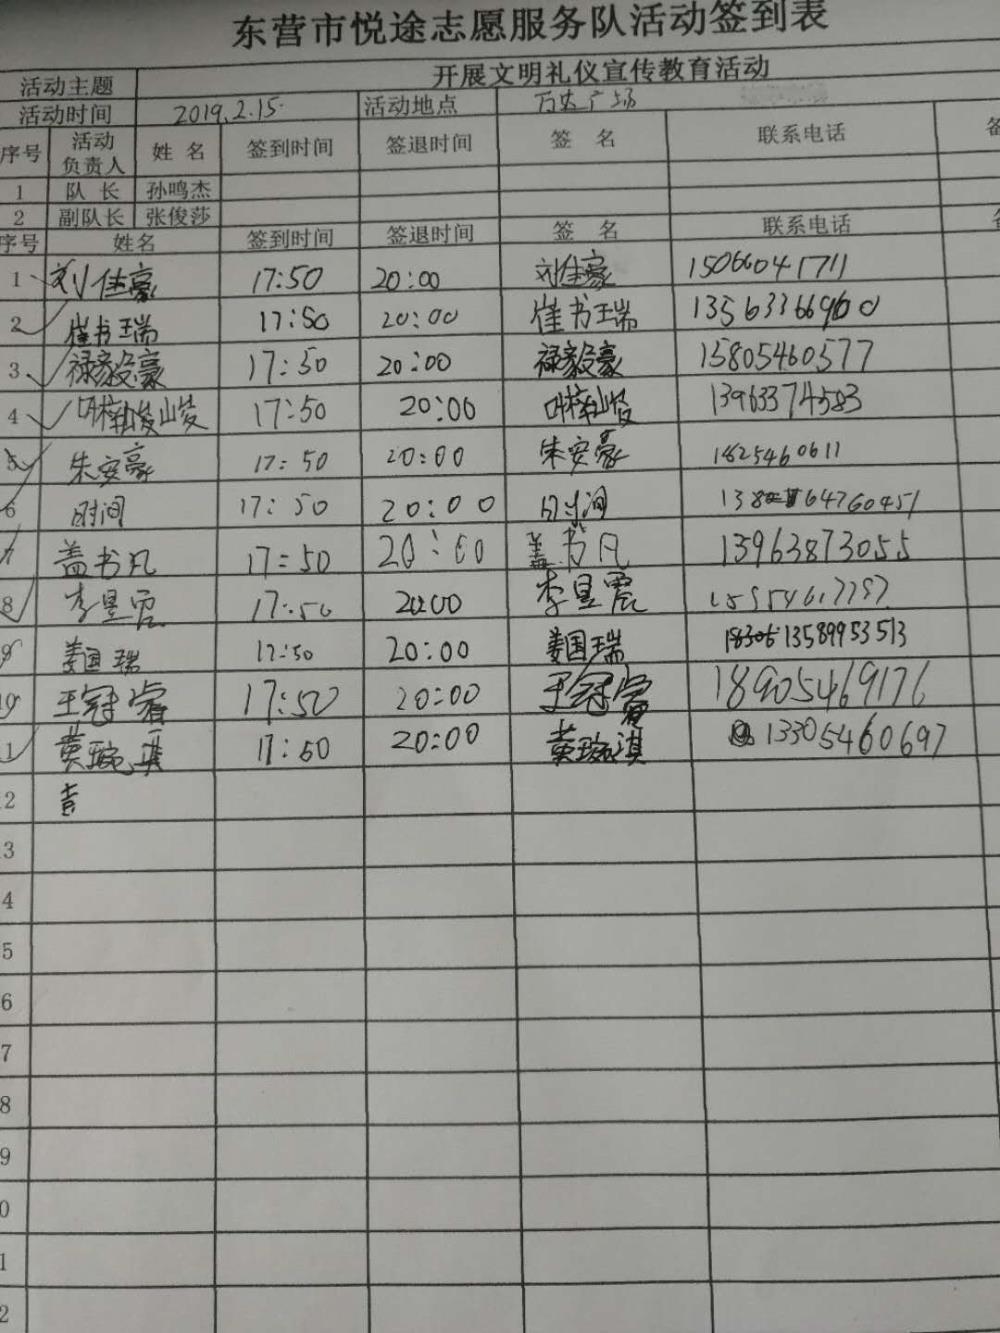 东营市悦途志愿服务队活动签到表
活动主题 开展文明礼仪宣传教育活动
活动时间 2019.2.15. 活动地点 万达广场
序号 活动负责人 姓名 签到时间 签退时间 签名 联系电话 备
1 队长 孙鸣杰
2 副队长 张俊莎
序号 姓名 签到时间 签退时间 签名 联系电话 备
1 刘佳豪 17:50 20:00 刘佳豪 15066041711
2 崔书瑞 17:50 20:00 崔书瑞
3 禄毅豪 17:50 20:00 禄毅豪 15805460577
4 17:50 20:00 13963374583
5 朱安豪 17:50 20:00 朱安豪 1825460611
6 时间 17:50 20:00 时间
7 盖书凡 17:50 20:00 盖书凡 13963873055
8 李昱震 17:50 20:00 李昱震
9 姜国瑞 17:50 20:00 姜国瑞 13589953513
10 王冠睿 17:50 20:00 王冠睿 18905469176
11 黄琬琪 17:50 20:00 黄琬琪 13305460697
2
3
4
5
6
7
8
9
0
1
2